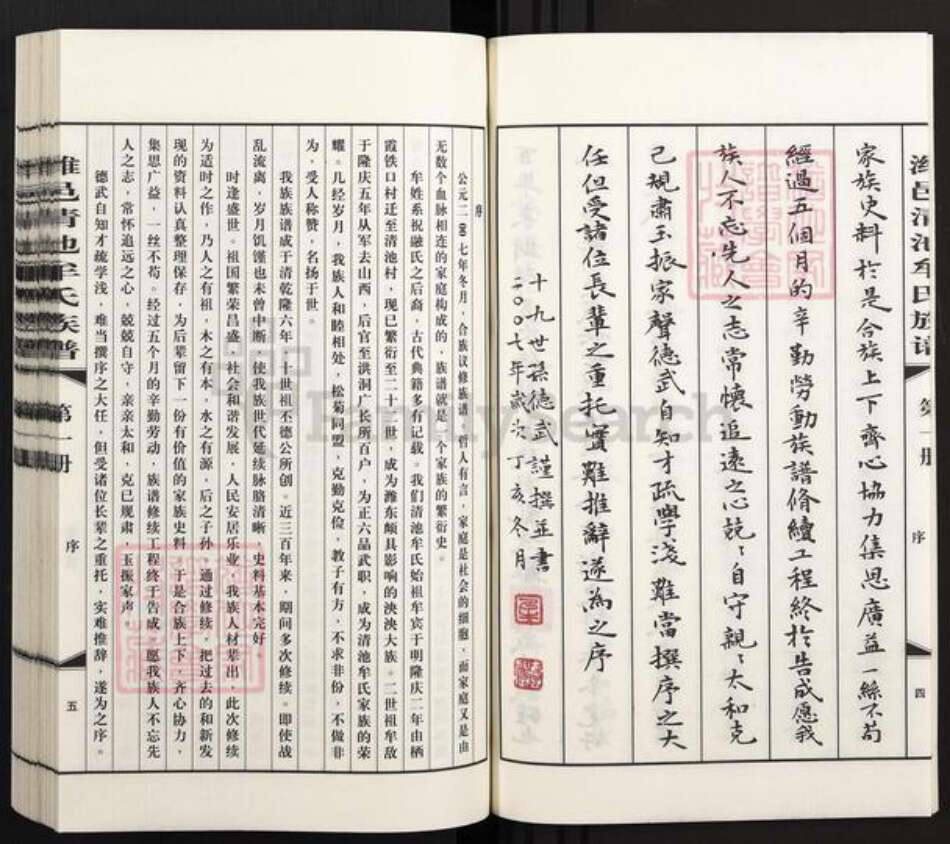 潍邑清池牟氏族谱 第一册 序 四
家族史料於是合族上下齊心協力集思廣益一絲不苟
經過五個月的辛勤勞動族譜脩續工程終於告成愿我
族人不忘先人之志常懷追遠之心兢々自守親々太和克
己規肅玉振家聲德武自知才疏學淺難當撰序之大
任但受諸位長輩之重托實難推辭遂為之序
十九世孫德武謹撰並書
二〇〇七年歲次丁亥冬月
序
公元二〇〇七年冬月，合族议修族谱。哲人有言，家庭是社会的细胞，而家庭又是由
无数个血脉相连的家庭构成的，族谱就是一个家族的繁衍史。
牟姓系祝融氏之后裔，古代典籍多有记载。我们清池牟氏始祖牟宾于明隆庆二年由栖
霞铁口村迁至清池村，现已繁衍至二十二世，成为潍东颇具影响的泱泱大族。二世祖牟敖
于隆庆五年从军去山西，后官至洪洞广长所百户，为正六品武职，成为清池牟氏家族的荣
耀。几经岁月，我族人和睦相处，松菊同盟，克勤克俭，教子有方，不求非份，不做非
为，受人称赞，名扬于世。
我族族谱成于清乾隆六年，十世祖丕德公所创。近三百年来，期间多次修续。即使战
乱流离，岁月饥馑也未曾中断，使我族世代延续脉胳清晰，史料基本完好。
时逢盛世。祖国繁荣昌盛，社会和谐发展，人民安居乐业，我族人材辈出，此次修续
为适时之作，乃人之有祖，木之有本，水之有源，后之子孙，通过修续，把过去的和新发
现的资料认真整理保存，为后辈留下一份有价值的家族史料。于是合族上下，齐心协力，
集思广益，一丝不苟。经过五个月的辛勤劳动，族谱修续工程终于告成。愿我族人不忘先
人之志，常怀追远之心，兢兢自守，亲亲太和，克己规肃，玉振家声。
德武自知才疏学浅，难当撰序之大任，但受诸位长辈之重托，实难推辞，遂为之序。
潍邑清池牟氏族谱 第一册 序 五
FamilySearch